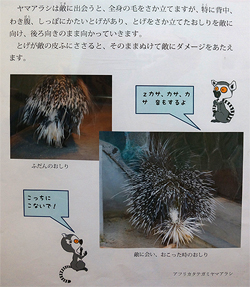 ヤマアラシは敵に出会うと、全身の毛をさか立てますが、特に背中、
わき腹、しっぽにかたいとげがあり、とげをさか立てたおしりを敵に
向け、後ろ向きのまま向かっていきます。
とげが敵の皮ふにささると、そのままぬけて敵にダメージをあたえ
ます。
カサ、カサ、カ
サ 音もするよ
ふだんのおしり
こっちに
こないで!
敵に会い、おこった時のおしり
アフリカタテガミヤマアラシ